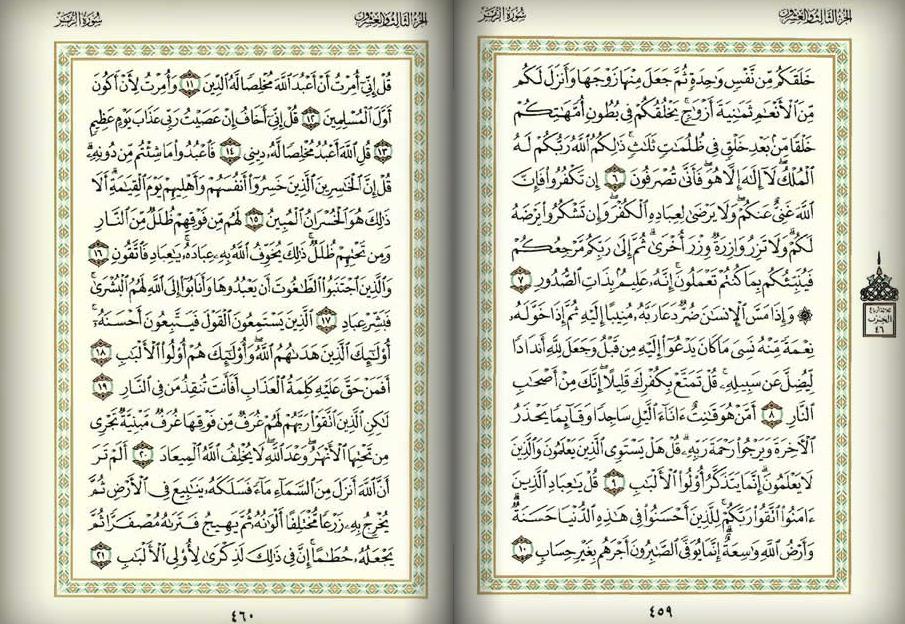 الجزء الثالث والعشرون
سورة الزمر
خَلَقَكُم مِّن نَّفْسٍ وَٰحِدَةٍ ثُمَّ جَعَلَ مِنْهَا زَوْجَهَا وَأَنزَلَ لَكُم
مِّنَ ٱلْأَنْعَٰمِ ثَمَٰنِيَةَ أَزْوَٰجٍۚ يَخْلُقُكُمْ فِى بُطُونِ أُمَّهَٰتِكُمْ
خَلْقًا مِّنۢ بَعْدِ خَلْقٍ فِى ظُلُمَٰتٍ ثَلَٰثٍۚ ذَٰلِكُمُ ٱللَّهُ رَبُّكُمْ لَهُ
ٱلْمُلْكُۖ لَآ إِلَٰهَ إِلَّا هُوَۖ فَأَنَّىٰ تُصْرَفُونَ ٦ إِن تَكْفُرُوا۟ فَإِنَّ
ٱللَّهَ غَنِىٌّ عَنكُمْۖ وَلَا يَرْضَىٰ لِعِبَادِهِ ٱلْكُفْرَۖ وَإِن تَشْكُرُوا۟ يَرْضَهُ
لَكُمْۗ وَلَا تَزِرُ وَازِرَةٌ وِزْرَ أُخْرَىٰۗ ثُمَّ إِلَىٰ رَبِّكُم مَّرْجِعُكُمْ
فَيُنَبِّئُكُم بِمَا كُنتُمْ تَعْمَلُونَۚ إِنَّهُۥ عَلِيمٌۢ بِذَاتِ ٱلصُّدُورِ ٧
۞ وَإِذَا مَسَّ ٱلْإِنسَٰنَ ضُرٌّ دَعَا رَبَّهُۥ مُنِيبًا إِلَيْهِ ثُمَّ إِذَا خَوَّلَهُۥ
نِعْمَةً مِّنْهُ نَسِىَ مَا كَانَ يَدْعُوٓا۟ إِلَيْهِ مِن قَبْلُ وَجَعَلَ لِلَّهِ أَندَادًا
لِّيُضِلَّ عَن سَبِيلِهِۦۚ قُلْ تَمَتَّعْ بِكُفْرِكَ قَلِيلًاۖ إِنَّكَ مِنْ أَصْحَٰبِ
ٱلنَّارِ ٨ أَمَّنْ هُوَ قَٰنِتٌ ءَانَآءَ ٱلَّيْلِ سَاجِدًا وَقَآئِمًا يَحْذَرُ
ٱلْءَاخِرَةَ وَيَرْجُوا۟ رَحْمَةَ رَبِّهِۦۗ قُلْ هَلْ يَسْتَوِى ٱلَّذِينَ يَعْلَمُونَ وَٱلَّذِينَ
لَا يَعْلَمُونَۗ إِنَّمَا يَتَذَكَّرُ أُو۟لُوا۟ ٱلْأَلْبَٰبِ ٩ قُلْ يَٰعِبَادِ ٱلَّذِينَ
ءَامَنُوا۟ ٱتَّقُوا۟ رَبَّكُمْۚ لِلَّذِينَ أَحْسَنُوا۟ فِى هَٰذِهِ ٱلدُّنْيَا حَسَنَةٌۗ
وَأَرْضُ ٱللَّهِ وَٰسِعَةٌۗ إِنَّمَا يُوَفَّى ٱلصَّٰبِرُونَ أَجْرَهُم بِغَيْرِ حِسَابٍ ١٠
٤٥٩
الحزب
٤٦
الجزء الثالث والعشرون
سورة الزمر
قُلْ إِنِّىٓ أُمِرْتُ أَنْ أَعْبُدَ ٱللَّهَ مُخْلِصًا لَّهُ ٱلدِّينَ ١١ وَأُمِرْتُ لِأَنْ أَكُونَ
أَوَّلَ ٱلْمُسْلِمِينَ ١٢ قُلْ إِنِّىٓ أَخَافُ إِنْ عَصَيْتُ رَبِّى عَذَابَ يَوْمٍ عَظِيمٍ
١٣ قُلِ ٱللَّهَ أَعْبُدُ مُخْلِصًا لَّهُۥ دِينِى ١٤ فَٱعْبُدُوا۟ مَا شِئْتُم مِّن دُونِهِۦۗ
قُلْ إِنَّ ٱلْخَٰسِرِينَ ٱلَّذِينَ خَسِرُوٓا۟ أَنفُسَهُمْ وَأَهْلِيهِمْ يَوْمَ ٱلْقِيَٰمَةِۗ أَلَا
ذَٰلِكَ هُوَ ٱلْخُسْرَانُ ٱلْمُبِينُ ١٥ لَهُم مِّن فَوْقِهِمْ ظُلَلٌ مِّنَ ٱلنَّارِ
وَمِن تَحْتِهِمْ ظُلَلٌۚ ذَٰلِكَ يُخَوِّفُ ٱللَّهُ بِهِۦ عِبَادَهُۥۚ يَٰعِبَادِ فَٱتَّقُونِ ١٦
وَٱلَّذِينَ ٱجْتَنَبُوا۟ ٱلطَّٰغُوتَ أَن يَعْبُدُوهَا وَأَنَابُوٓا۟ إِلَى ٱللَّهِ لَهُمُ ٱلْبُشْرَىٰۚ
فَبَشِّرْ عِبَادِ ١٧ ٱلَّذِينَ يَسْتَمِعُونَ ٱلْقَوْلَ فَيَتَّبِعُونَ أَحْسَنَهُۥٓۚ
أُو۟لَٰٓئِكَ ٱلَّذِينَ هَدَىٰهُمُ ٱللَّهُۖ وَأُو۟لَٰٓئِكَ هُمْ أُو۟لُوا۟ ٱلْأَلْبَٰبِ ١٨
أَفَمَنْ حَقَّ عَلَيْهِ كَلِمَةُ ٱلْعَذَابِ أَفَأَنتَ تُنقِذُ مَن فِى ٱلنَّارِ ١٩
لَٰكِنِ ٱلَّذِينَ ٱتَّقَوْا۟ رَبَّهُمْ لَهُمْ غُرَفٌ مِّن فَوْقِهَا غُرَفٌ مَّبْنِيَّةٌ تَجْرِى
مِن تَحْتِهَا ٱلْأَنْهَٰرُۖ وَعْدَ ٱللَّهِۖ لَا يُخْلِفُ ٱللَّهُ ٱلْمِيعَادَ ٢٠ أَلَمْ تَرَ
أَنَّ ٱللَّهَ أَنزَلَ مِنَ ٱلسَّمَآءِ مَآءً فَسَلَكَهُۥ يَنَٰبِيعَ فِى ٱلْأَرْضِ ثُمَّ
يُخْرِجُ بِهِۦ زَرْعًا مُّخْتَلِفًا أَلْوَٰنُهُۥ ثُمَّ يَهِيجُ فَتَرَىٰهُ مُصْفَرًّا ثُمَّ
يَجْعَلُهُۥ حُطَٰمًاۚ إِنَّ فِى ذَٰلِكَ لَذِكْرَىٰ لِأُو۟لِى ٱلْأَلْبَٰبِ ٢١
٤٦٠